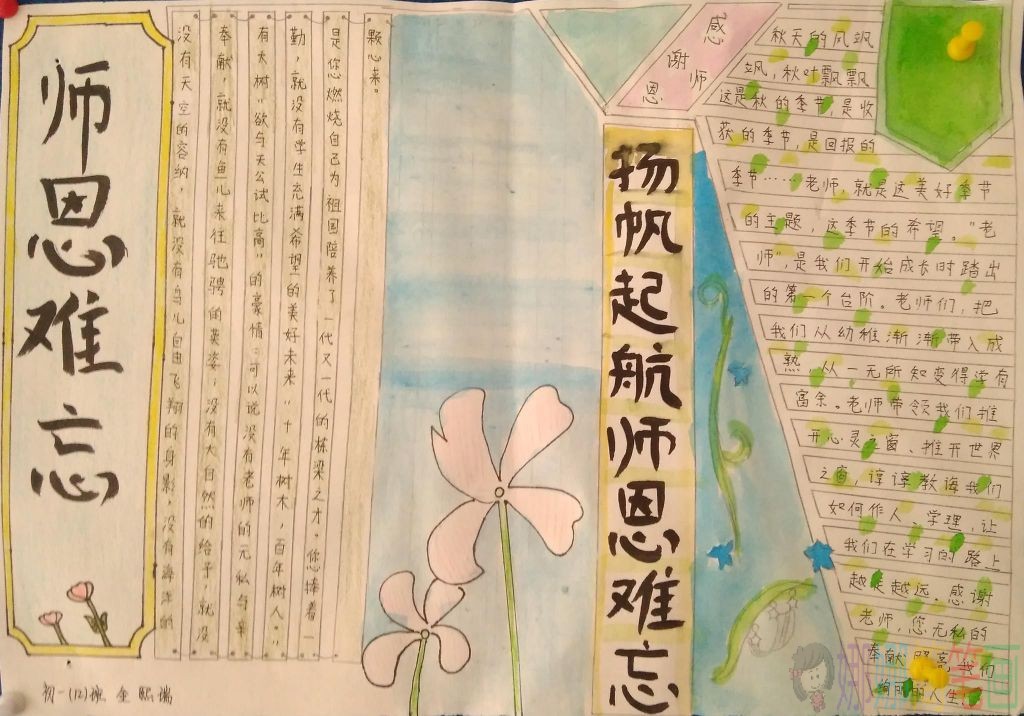 师恩难忘
没有天空的容纳，就没有鸟儿自由飞翔的身影，没有海洋的
奉献，就没有鱼儿来往驰骋的英姿；没有大自然的给予，就没
有大树“欲与天公试比高”的豪情；可以说没有老师的无私与辛
勤，就没有学生充满希望的美好未来“十年树木，百年树人”，
是您燃烧自己为祖国陪养了一代又一代的栋梁之才。您捧着一
颗心来。
初一(12)班 金熙瑞
感
谢师
恩
扬帆起航师恩难忘
秋天的风飒
飒，秋叶飘飘
这是秋的季节，是收
获的季节，是回报的
季节……老师，就是这美好季节
的主题，这季节的希望。“老
师”，是我们开始成长时踏出
的第一个台阶。老师们，把
我们从幼稚渐渐带入成
熟，从一无所知变得学有
富余。老师带领我们推
开心灵之窗、推开世界
之窗，谆谆教诲我们
如何作人、学理，让
我们在学习的路上
越走越远。感谢
老师，您无私的
奉献照亮我们
绚丽的人生！